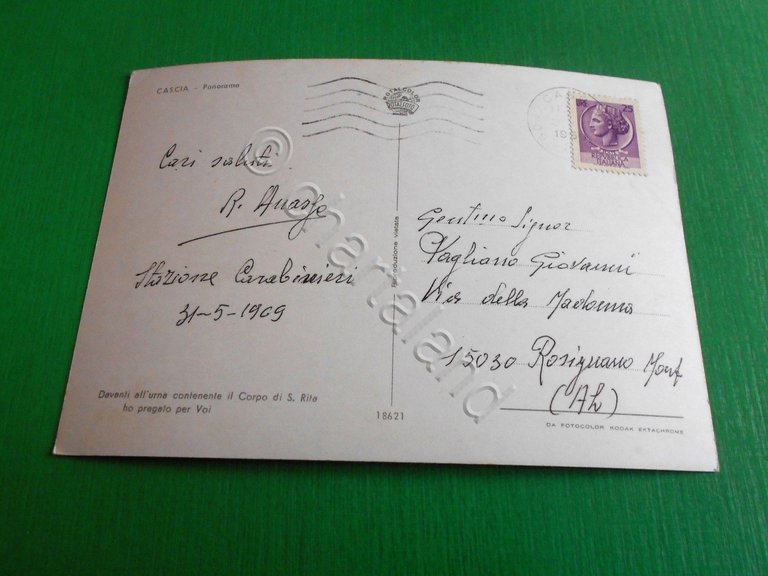 CASCIA - Panorama
ROTALCOLOR
ROTALFOTO
Cari saluti
R.
Stazione Carabinieri
31-5-1969
Davanti all'urna contenente il Corpo di S. Rita
ho pregato per Voi
18621
Riproduzione vietata
25
REPUBBLICA
ITALIANA
Gentmo Signor
Vagliano Giovanni
Via della Madonna
15030 Rosignano Monf
(AL)
DA FOTOCOLOR KODAK EKTACHROME
© chartaland